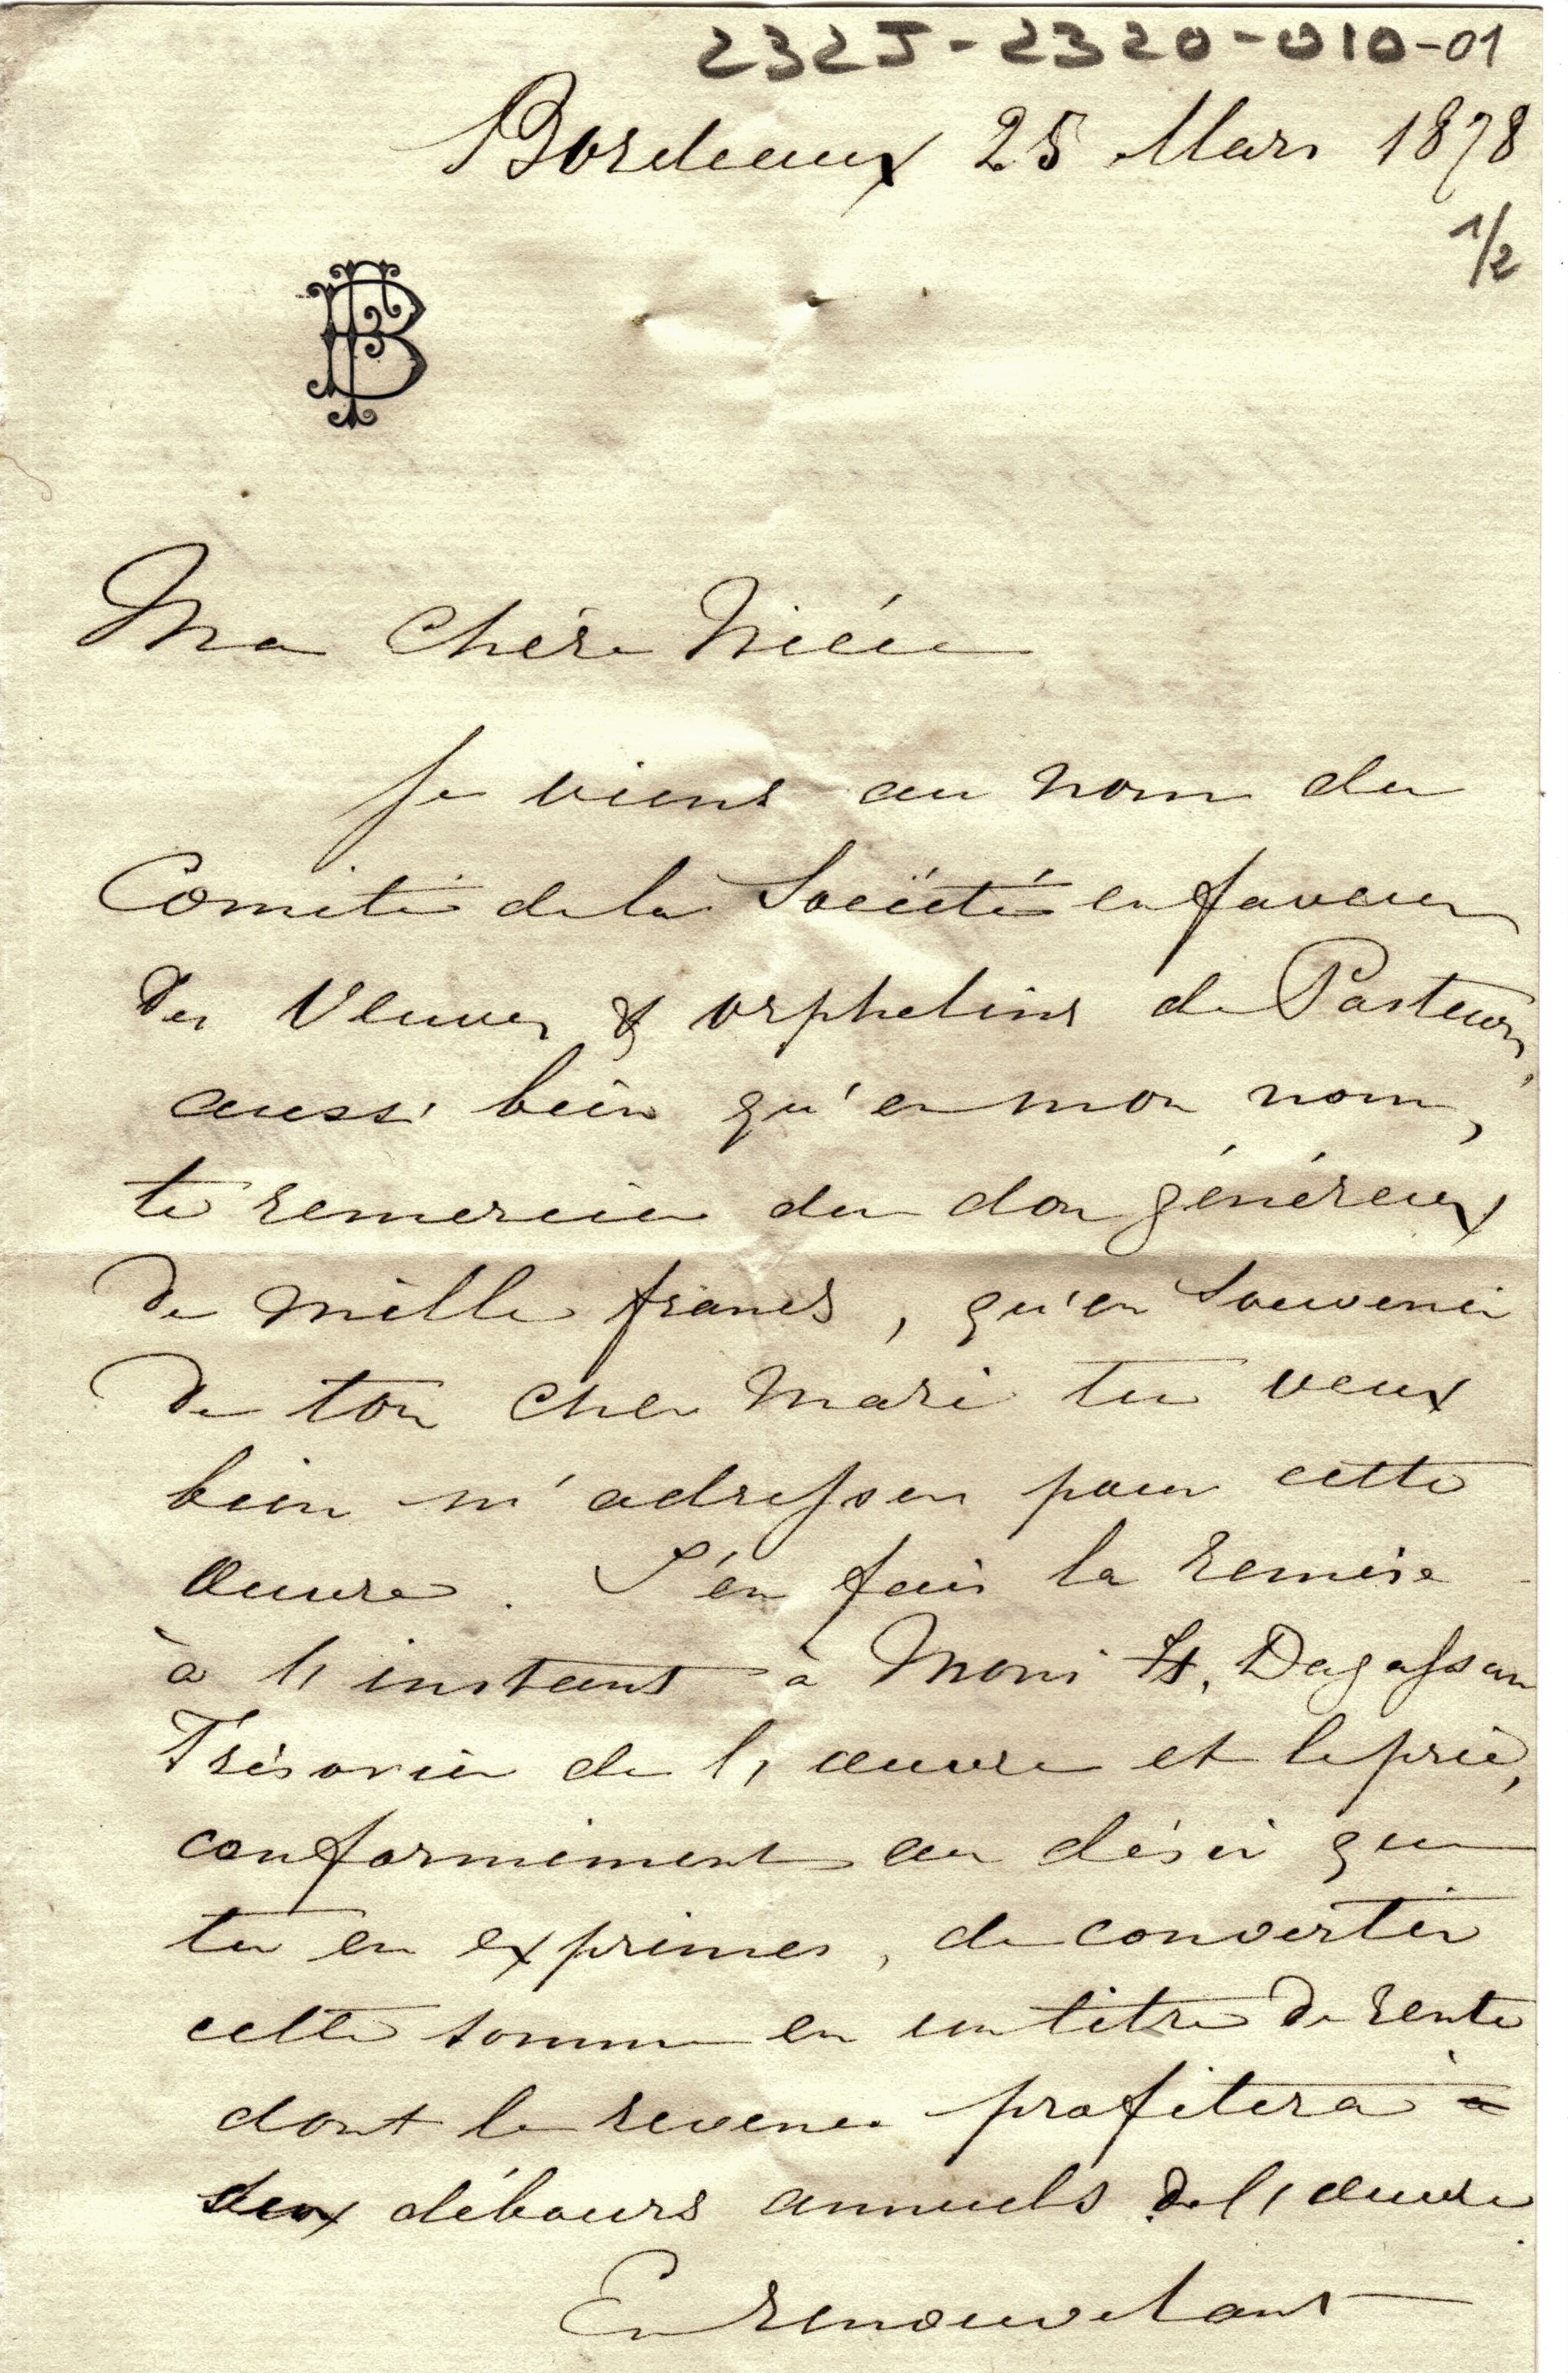 232J-2320-010-01
Bordeaux 25 Mars 1878
1/2
Ma chére Niéce
Je viens au nom du
Comité de la Société en faveur
des Veuves & orphelins de Pasteurs,
aussi bien qu'en mon nom,
te remercier du don généreux
de mille francs, qu'en souvenir
de ton cher mari tu veux
bien m'adresser pour cette
œuvre. J'en fais la remise
à l'instant à Monsr Dagassan
Trésorier de l'œuvre et le prie,
conformément au désir que
tu en exprimes, de convertir
cette somme en un titre de rente
dont le revenu profitera
débours annuels de l'œuvre.
En renouvelant